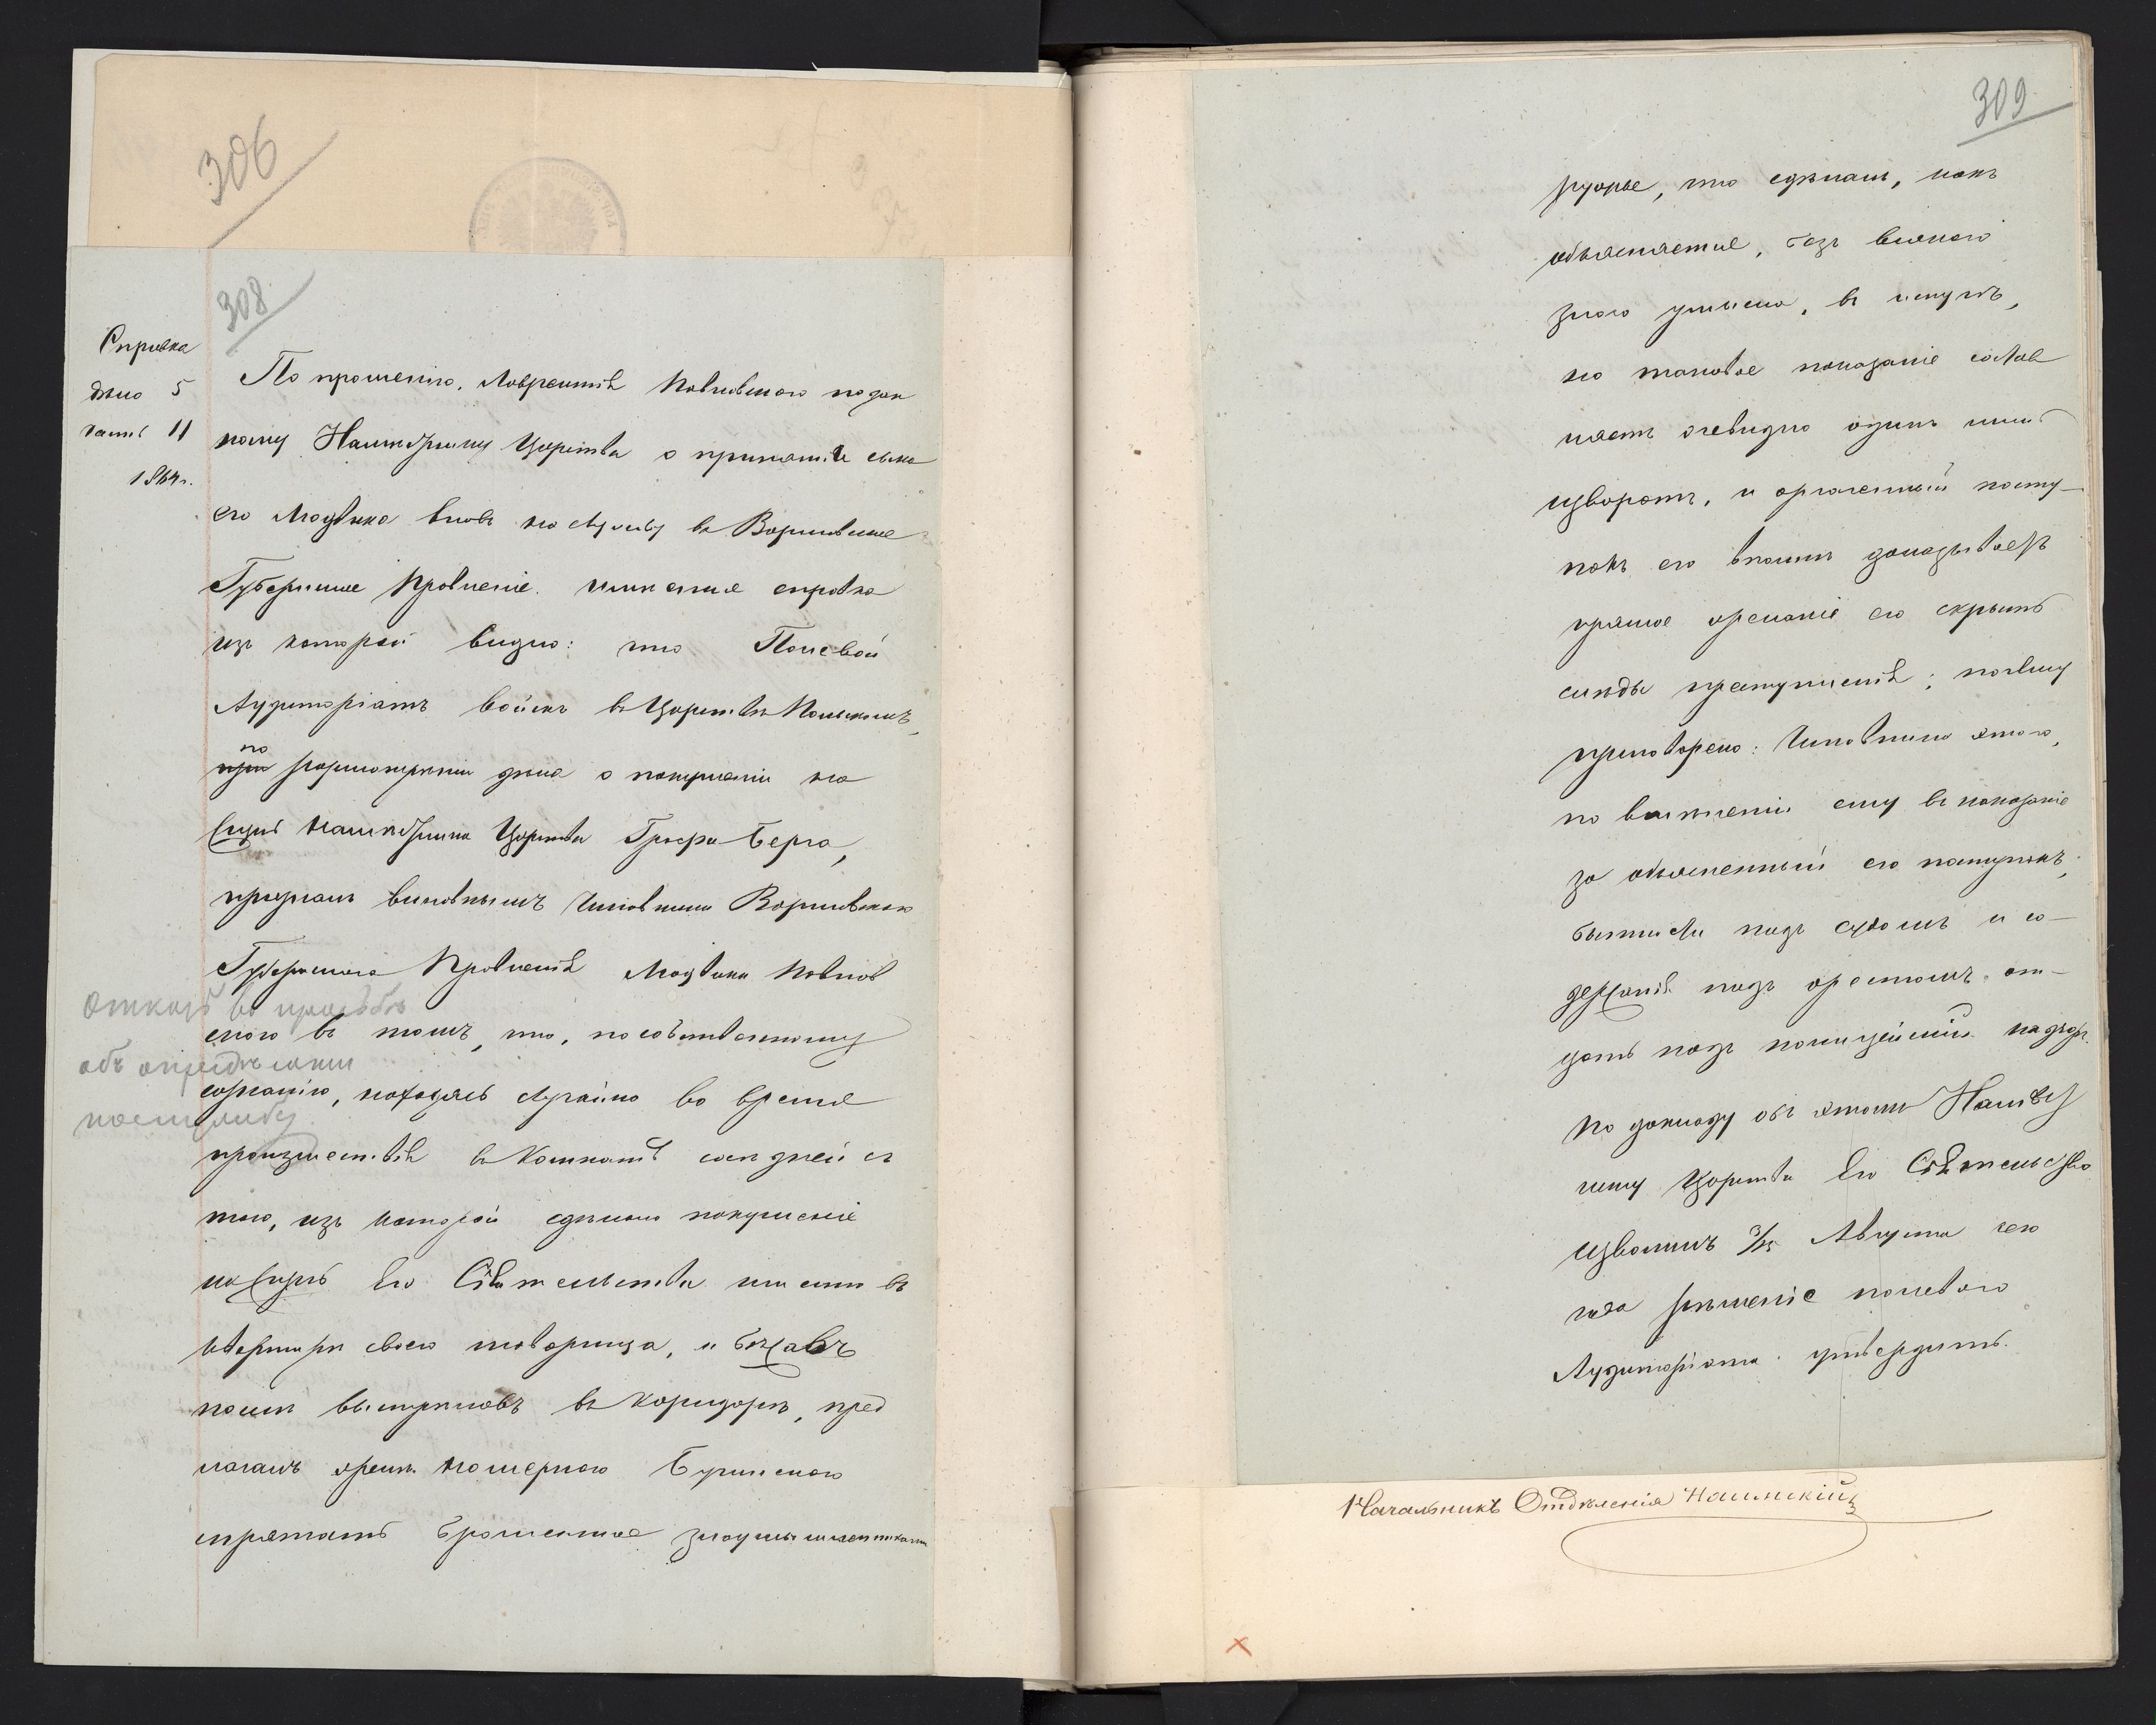 306
308
Справка
дѣло 5
часть 11
1864 г.
По прошенію Лаврентія Павловскаго подан
ному Намѣстнику Царства о принятіи сына
его Людвика вновь на службу въ Варшавское
Губернское Правленіе справка
изъ которой видно: что Полевой
Аудиторіатъ войскъ въ Царствѣ Польскомъ,
по разсмотрѣніи дѣла о покушеніи на
жизнь Намѣстника Царства Графа Берга,
призналъ виновнымъ Чиновника Варшавскаго
Губернскаго Правленія Людвика Павлов
скаго въ томъ, что, по собственному
сознанію, находясь случайно во время
произшествія въ комнатѣ сосѣдней съ
тою, изъ которой сдѣлано покушеніе
на жизнь Его Сіятельства именно въ
квартирѣ своего товарища, и бѣжавъ
послѣ выстрѣловъ въ коридоръ, пред
лагалъ номерному
спрятать брошенное злоумышленниками
Отказъ въ просьбѣ
объ опредѣленіи
на службу
309
ружье, что сдѣлалъ, какъ
объясняетъ, безъ всякаго
злаго умысла, въ испугѣ,
но таковое показаніе состав
ляетъ очевидно одинъ лишь
изворотъ, и посту-
покъ его вполнѣ доказываетъ
прямое желаніе его скрыть
слѣды преступленія; почему
приговорено: Чиновника этого,
по вмѣненіи ему въ наказаніе
за объясненный его поступокъ,
бытности подъ судомъ и со-
держанія подъ арестомъ от-
дать подъ полицейскій надзоръ.
По докладу объ этомъ Намѣст
нику Царства Его Сіятельство
изволилъ 3/15 Августа сего
года рѣшеніе полеваго
Аудиторіата утвердить.
Начальникъ Отдѣленія